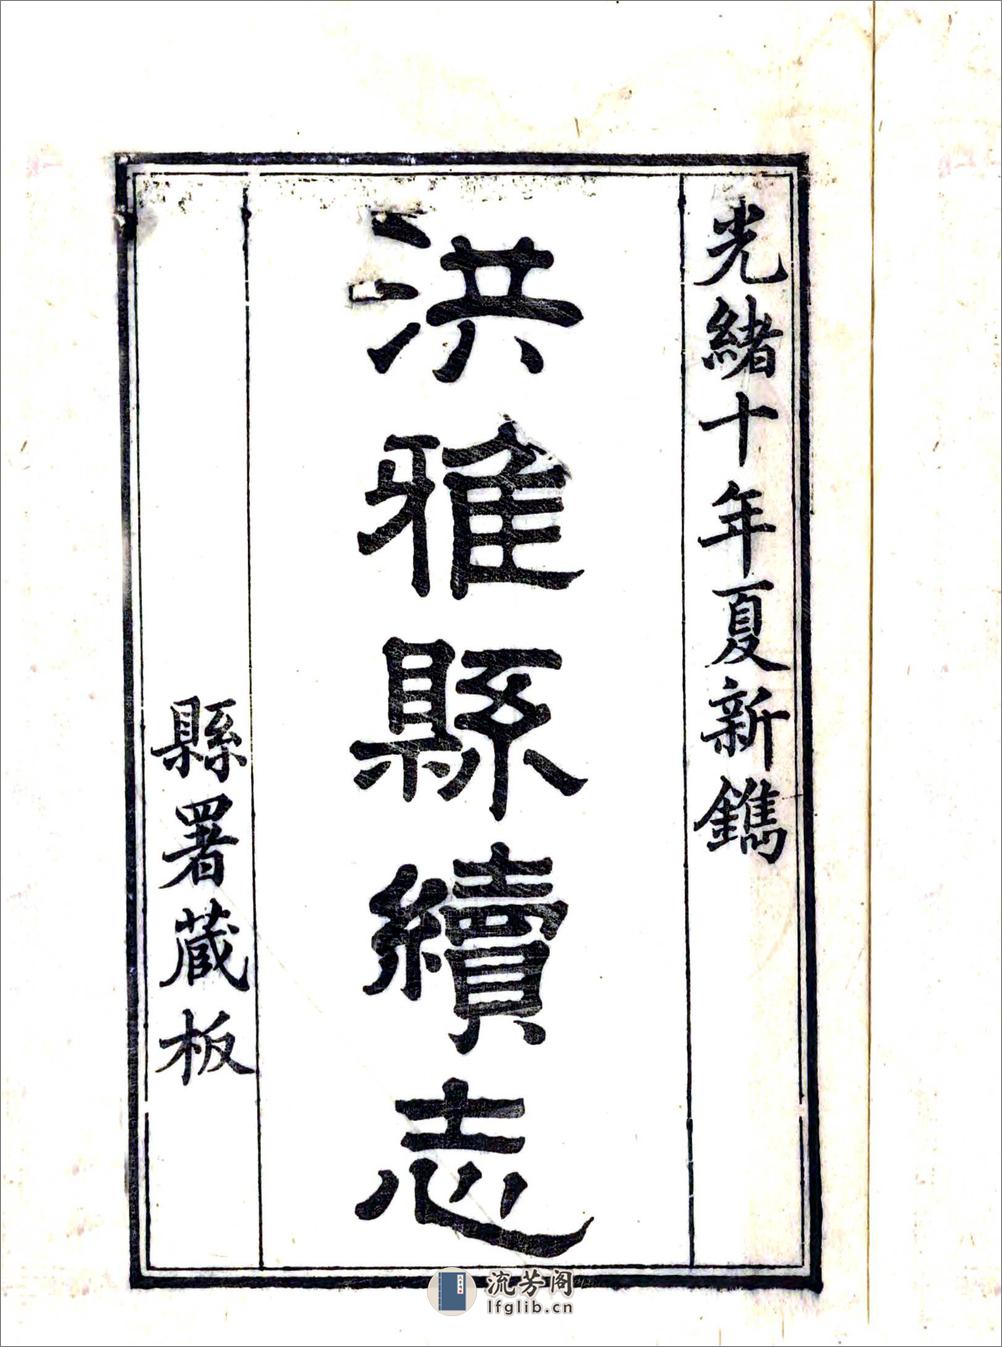 光緒十年夏新鐫
洪雅縣續志
縣署蔵板
流芳阁
lfglib.cn